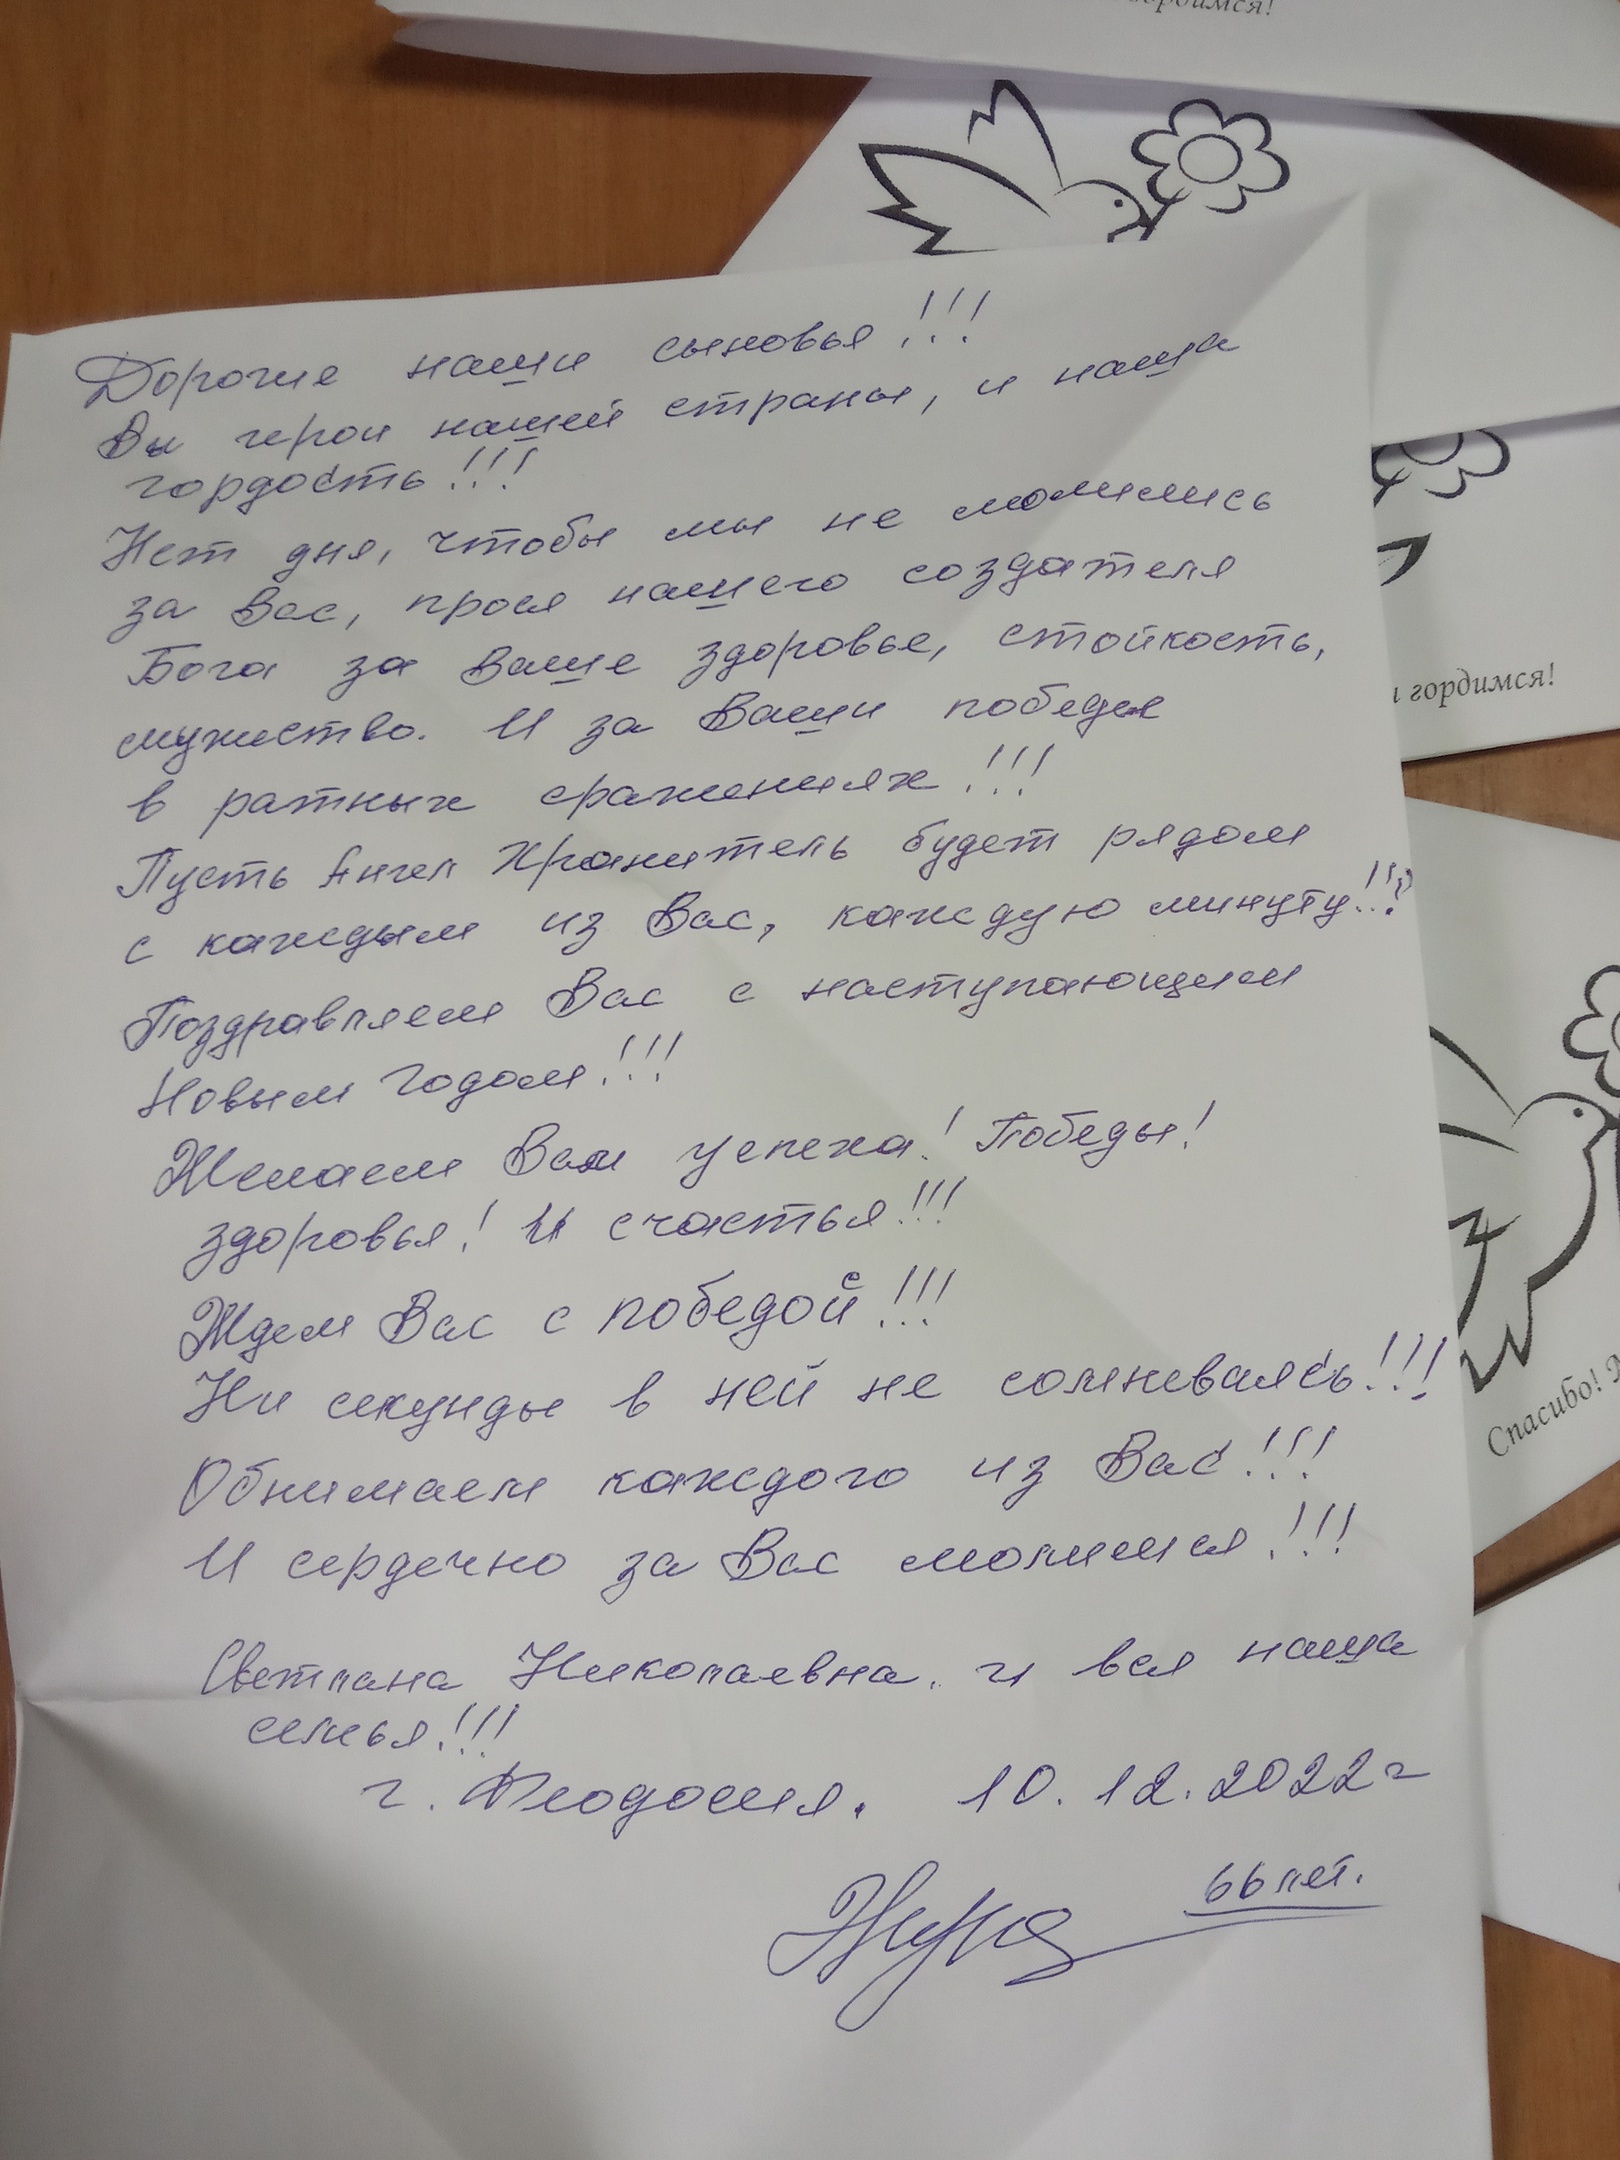 гордимся!
Дорогие наши сыновья!!!
Вы герои нашей страны, и наша
гордость!!!
Нет дня, чтобы мы не молились
за Вас, прося нашего создателя
Бога за Ваше здоровье, стойкость,
мужество. И за Ваши победы
в ратных сражениях!!!
Пусть Ангел Хранитель будет рядом
с каждым из Вас, каждую минуту!!!
Поздравляем Вас с наступающим
Новым Годом!!!
Желаем Вам успеха! Победы!
здоровья! И счастья!!!
Ждем Вас с победой!!!
Ни секунды в ней не сомневаясь!!!
Обнимаем каждого из Вас!!!
И сердечно за Вас молимся!!!
Светлана Николаевна. и вся наша
семья!!!
г. Феодосия. 10.12.2022г
66 лет.
и гордимся!
Спасибо!